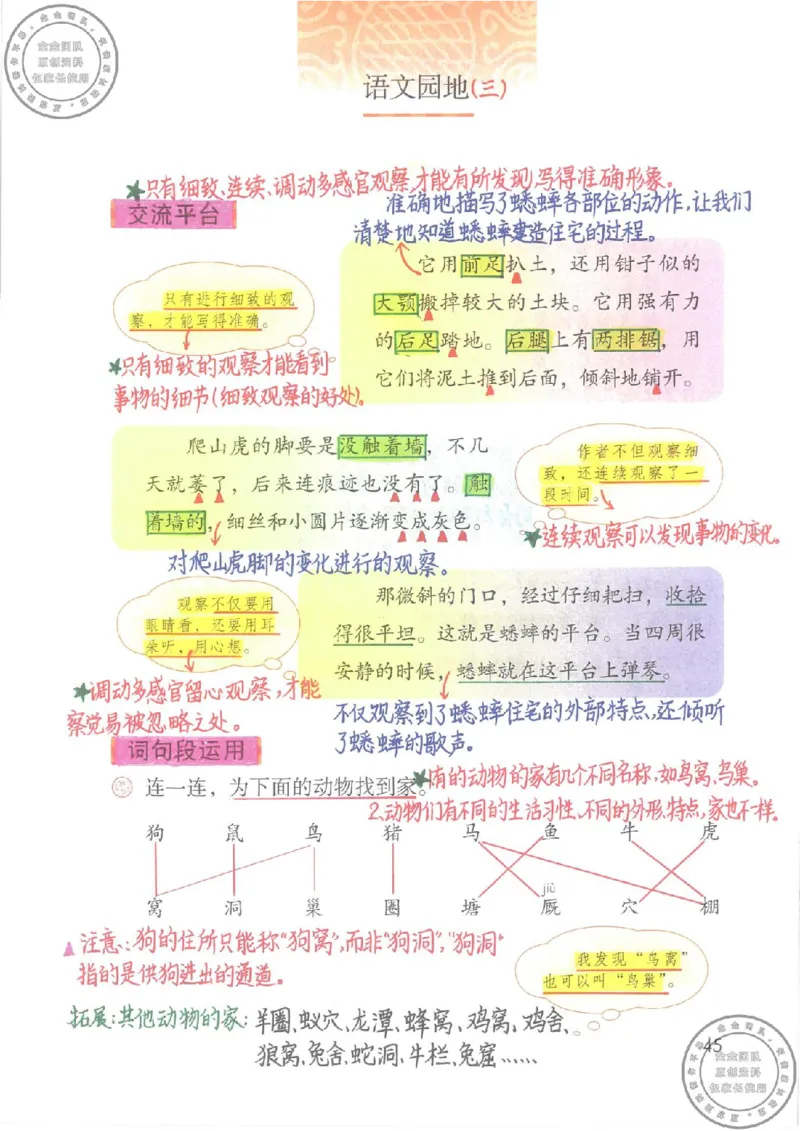 金金团队
原创资料
仅家长使用
语文园地(三)
★只有细致、连续、调动多感官观察,才能有所发现,写得准确形象。
交流平台
准确地描写了蟋蟀各部位的动作,让我们
清楚地知道蟋蟀建造住宅的过程。
它用前足扒土,还用钳子似的
大颚搬掉较大的土块。它用强有力
的后足踏地。后腿上有两排锯,用
它们将泥土推到后面,倾斜地铺开。
只有进行细致的观
察,才能写得准确。
★只有细致的观察才能看到
事物的细节(细致观察的好处)。
爬山虎的脚要是没触着墙,不几
天就萎了,后来连痕迹也没有了。触
着墙的,细丝和小圆片逐渐变成灰色。
作者不但观察细
致,还连续观察了一
段时间。
★连续观察可以发现事物的变化。
对爬山虎脚的变化进行的观察。
观察不仅要用
眼睛看,还要用耳
朵听,用心想。
那微斜的门口,经过仔细耙扫,收拾
得很平坦。这就是蟋蟀的平台。当四周很
安静的时候,蟋蟀就在这平台上弹琴。
★调动多感官留心观察,才能
察觉易被忽略之处。
不仅观察到了蟋蟀住宅的外部特点,还倾听
了蟋蟀的歌声。
词句段运用
连一连,为下面的动物找到家。
★1.有的动物的家有几个不同名称,如鸟窝、鸟巢。
2.动物们有不同的生活习性、不同的外形特点,家也不一样。
狗 鼠 鸟 猪 马 鱼 牛 虎
jiù
窝 洞 巢 圈 塘 厩 穴 棚
▲注意:狗的住所只能称“狗窝”,而非“狗洞”,“狗洞”
指的是供狗进出的通道。
我发现“鸟窝”
也可以叫“鸟巢”。
拓展:其他动物的家:羊圈、蚁穴、龙潭、蜂窝、鸡窝、鸡舍、
狼窝、兔舍、蛇洞、牛栏、兔窟……
45
金金团队
原创资料
仅家长使用